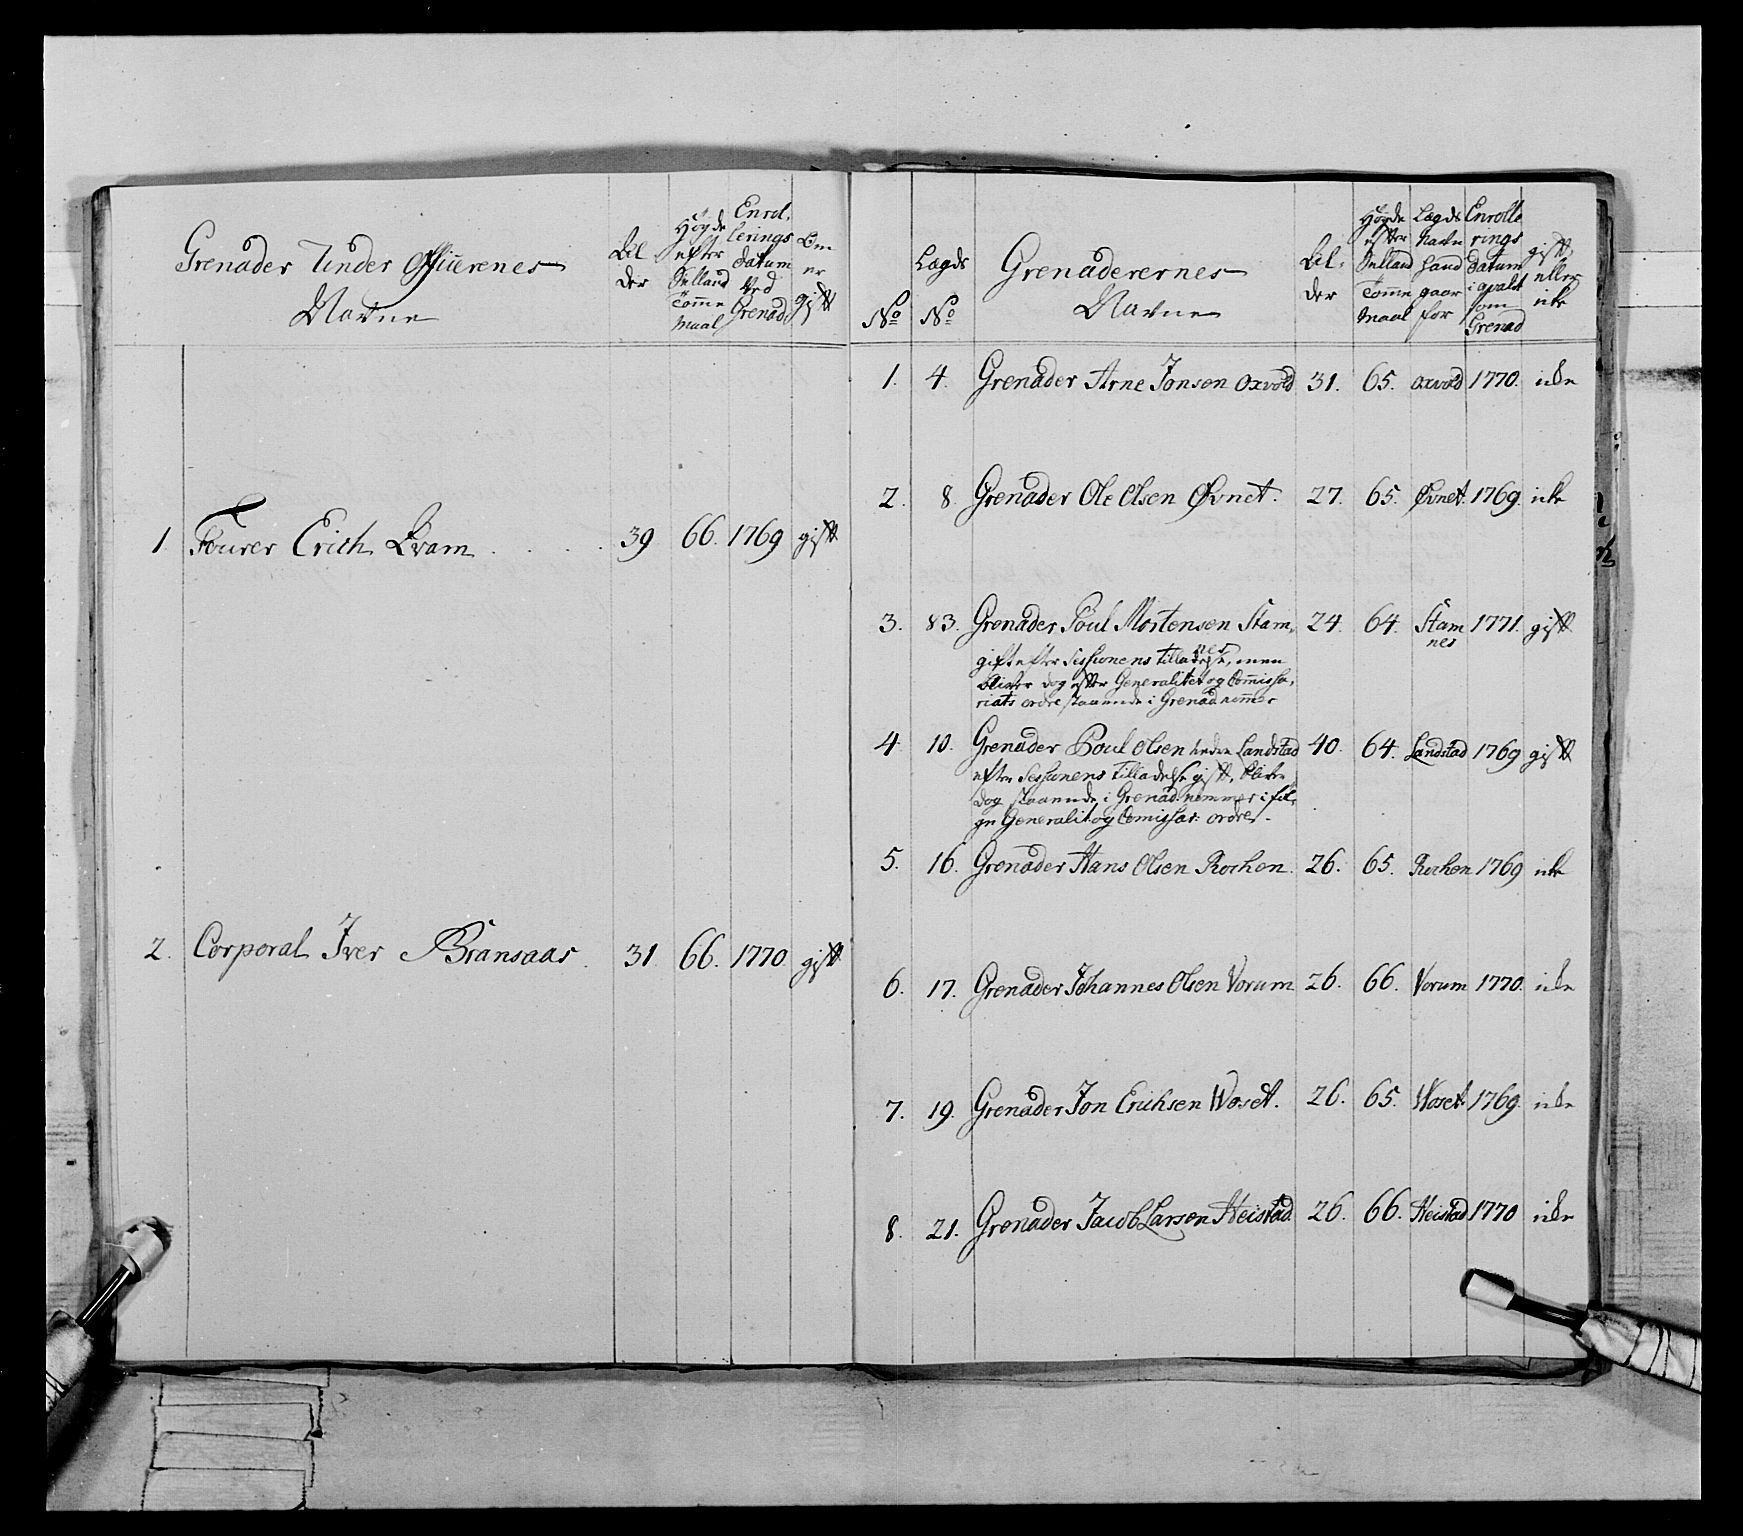 Grenader Under Officerenes
Navne
Al
der
Høyde
efter
Siælland
Tom̄e
Maal
Enrol,
lerings
datum
ved
Grenad.
Om
er
gift
1. Fourer Erich Qvam 39 66. 1769 gift
2. Corporal Iver Bransaas 31 66. 1770. gift
No
Lægds
No
Grenaderernes
Navne
Al,
der
Høyde
efter
Siælland
Tom̄e
Maal
Lægds
Navn
hand
gaar
for
Enrolle
rings
datum
som
Grenad
gift
eller
icke
1. 4. Grenader Arne Jonsen Oxvold 31. 65. Oxvold 1770. icke
2. 8. Grenader Ole Olsen Øvnet. 27. 65. Øvnet. 1769. icke
3. 83. Grenader Poul Mortensen Stam, 24. 64. Stam 1771. gift
nes nes
gift efter Sessionens tilladelse, men
bliver dog efter Generalitet og Com̄issa,
riats ordre staaende i Grenad nom̄er
4. 10. Grenader Poul Olsen nedre Landstad 40. 64. Landstad 1769 gift
efter Sessionens tilladelse gift, bliver
dog staaende i Grenad: nommer i føl,
ge Generalit: og Com̄issar: ordre.
5. 16. Grenader Hans Olsen Rochen. 26. 65. Rochen 1769 icke
6. 17. Grenader Johannes Olsen Vorum 26. 66. Vorum 1770. icke
7. 19. Grenader Jon Erichsen Woset. 26. 65. Woset 1769. icke
8. 21. Grenader Jacob Larsen Heistad 26. 66. Heistad 1770 icke